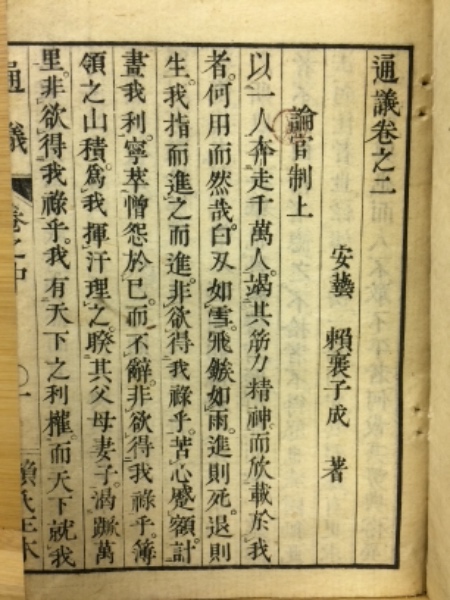 通議卷之二
安藝 賴襄子成 著
論官制上
以一人奔走千萬人。竭其筋力精神。而欣載於我
者。何用而然哉。白刃如雪。飛鏃如雨。進則死。退則
生。我指而進之而進。非欲得我祿乎。苦心蹙額。計
畫我利。寧萃憎怨於已。而不辭。非欲得我祿乎。簿
領之山積。爲我揮汗理之。暌其父母妻子。渴蹶萬
里。非欲得我祿乎。我有天下之利權。而天下就我
通議 卷之